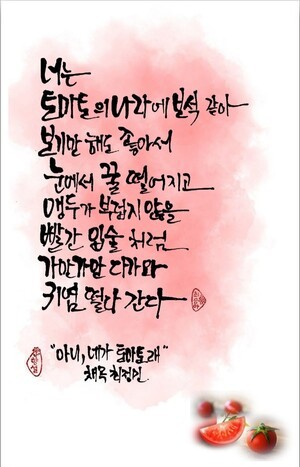 너는
토마토의 나라에 보석 같아
보기만 해도 좋아서
눈에서 꿀 떨어지고
앵두가 부럽지 않을
빨간 입술 처럼
가만가만 다가와
키염 떨다 간다
"아니, 네가 토마토래"
채목 최정인